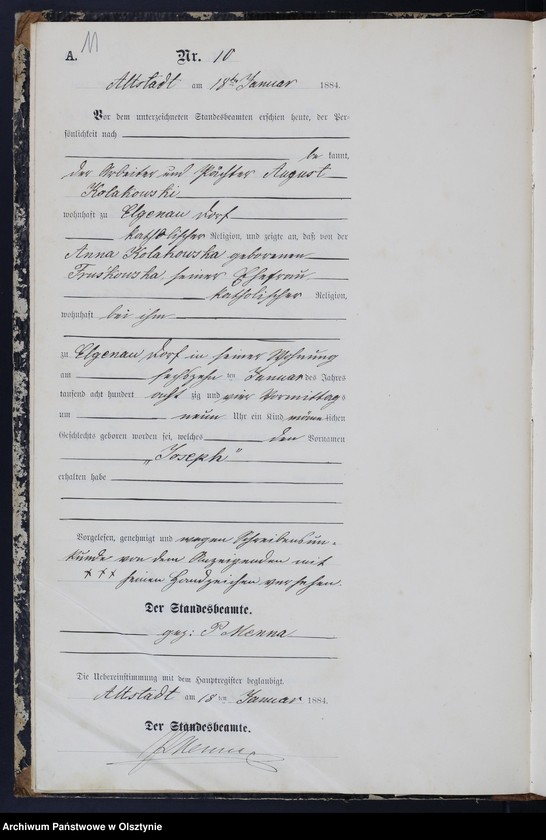 11
A. Nr. 10
Altstadt am 18ten Januar 1884.
Vor dem unterzeichneten Standesbeamten erschien heute, der Per-
sönlichkeit nach
be kannt,
der Arbeiter und Pächter August
Kolakowski
wohnhaft zu Elgenau Dorf
katholischer Religion, und zeigte an, daß von der
Anna Kolakowska geborenen
Truskowska seiner Ehefrau
katholischer Religion,
wohnhaft bei ihm
zu Elgenau Dorf in seiner Wohnung
am sechszehn ten Januar des Jahres
tausend acht hundert acht zig und vier Vormittags
um neun Uhr ein Kind männ lichen
Geschlechts geboren worden sei, welches den Vornamen
„Joseph"
erhalten habe
Vorgelesen, genehmigt und wegen Schreibensun-
kunde von dem Anzeigenden mit
+++ seinen Handzeichen versehen.
Der Standesbeamte.
gez: P Menna
Die Uebereinstimmung mit dem Hauptregister beglaubigt.
Altstadt am 18 ten Januar 1884.
Der Standesbeamte.
P Menna
Archiwum Państwowe w Olsztynie